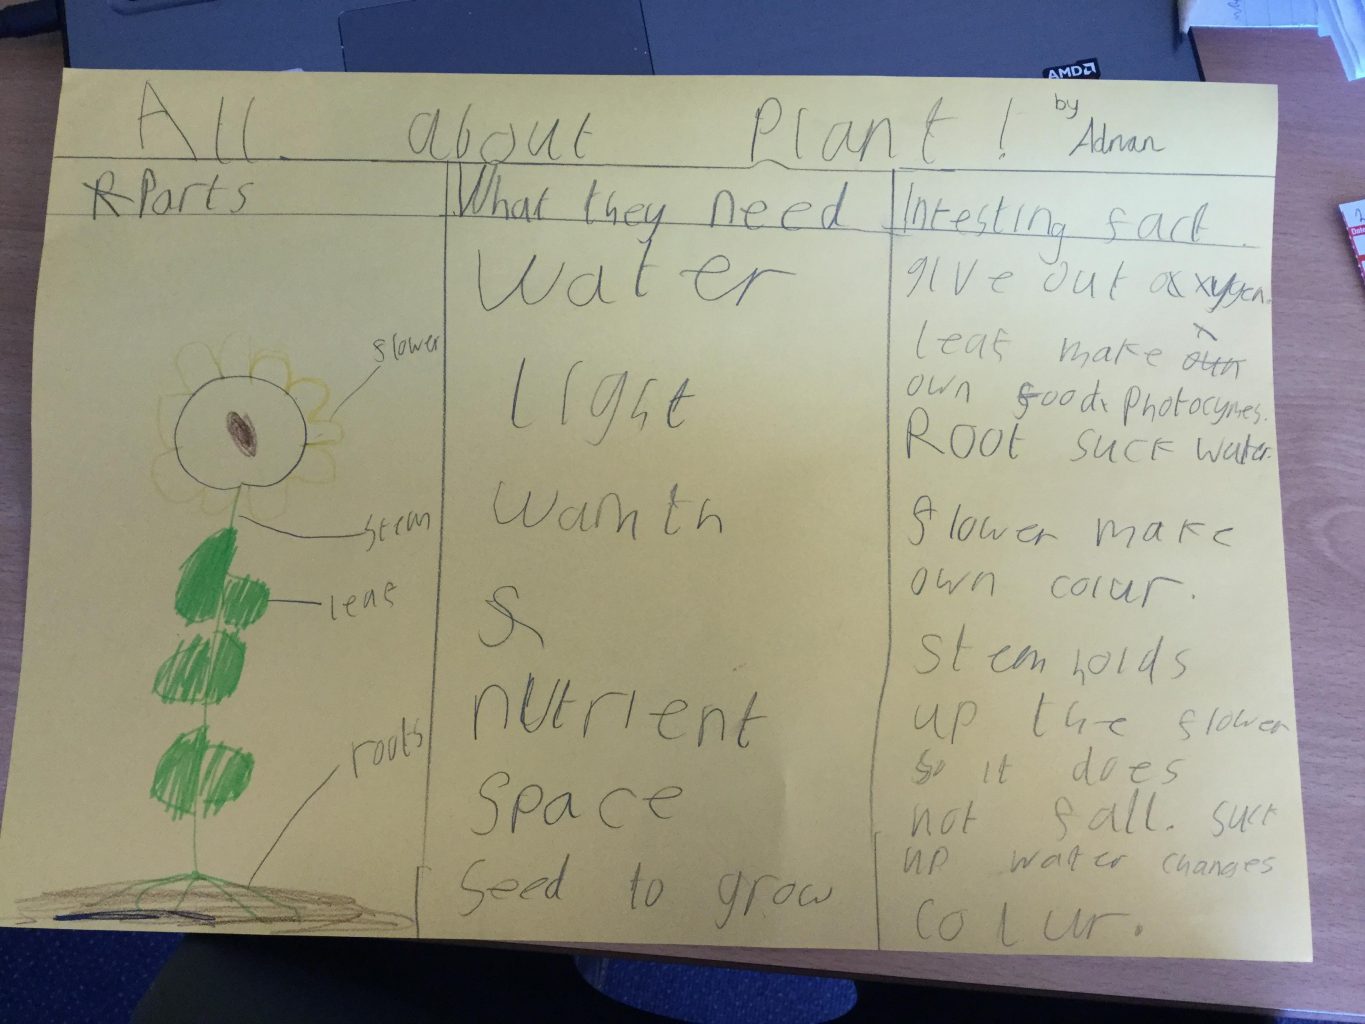 AMD
All about Plant! by Adnan
Parts
flower
stem
leaf
roots
What they need
Water
light
wamth
&
nutrient
space
seed to grow
Intesting fact.
give out oxygen.
leaf make
own food photocymes.
Root suck water.
flower make
own colur.
stem holds
up the flower
so it does
not fall. suck
up water changes
colur.